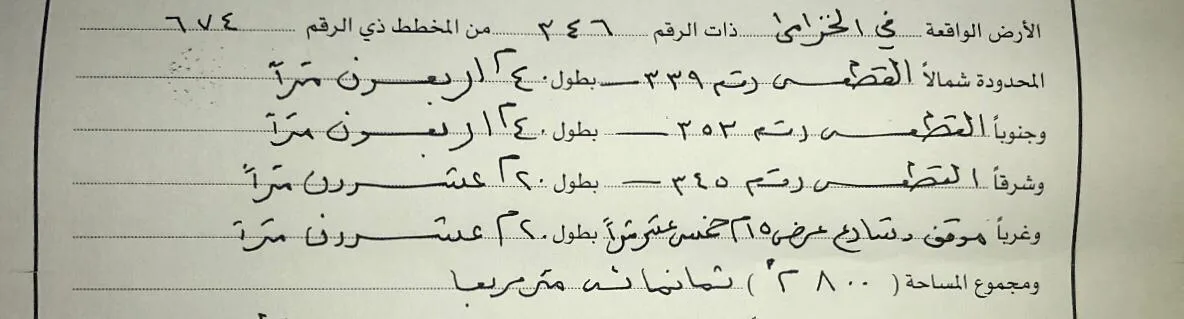 الأرض الواقعة في الخزامى ذات الرقم ٣٤٦ من المخطط ذي الرقم ٦٧٤
المحدودة شمالاً القطعه رقم ٣٣٩ بطول ٤٠م اربعون متراً
وجنوباً القطعه رقم ٣٥٣ بطول ٤٠م اربعون متراً
وشرقاً القطعه رقم ٣٤٥ بطول ٢٠م عشرون متراً
وغرباً موقف وشارع عرض ١٥م خمس عشر متراً بطول ٢٠م عشرون متراً
ومجموع المساحة ( ٨٠٠ م٢ ) ثمانمائه متر مربعا